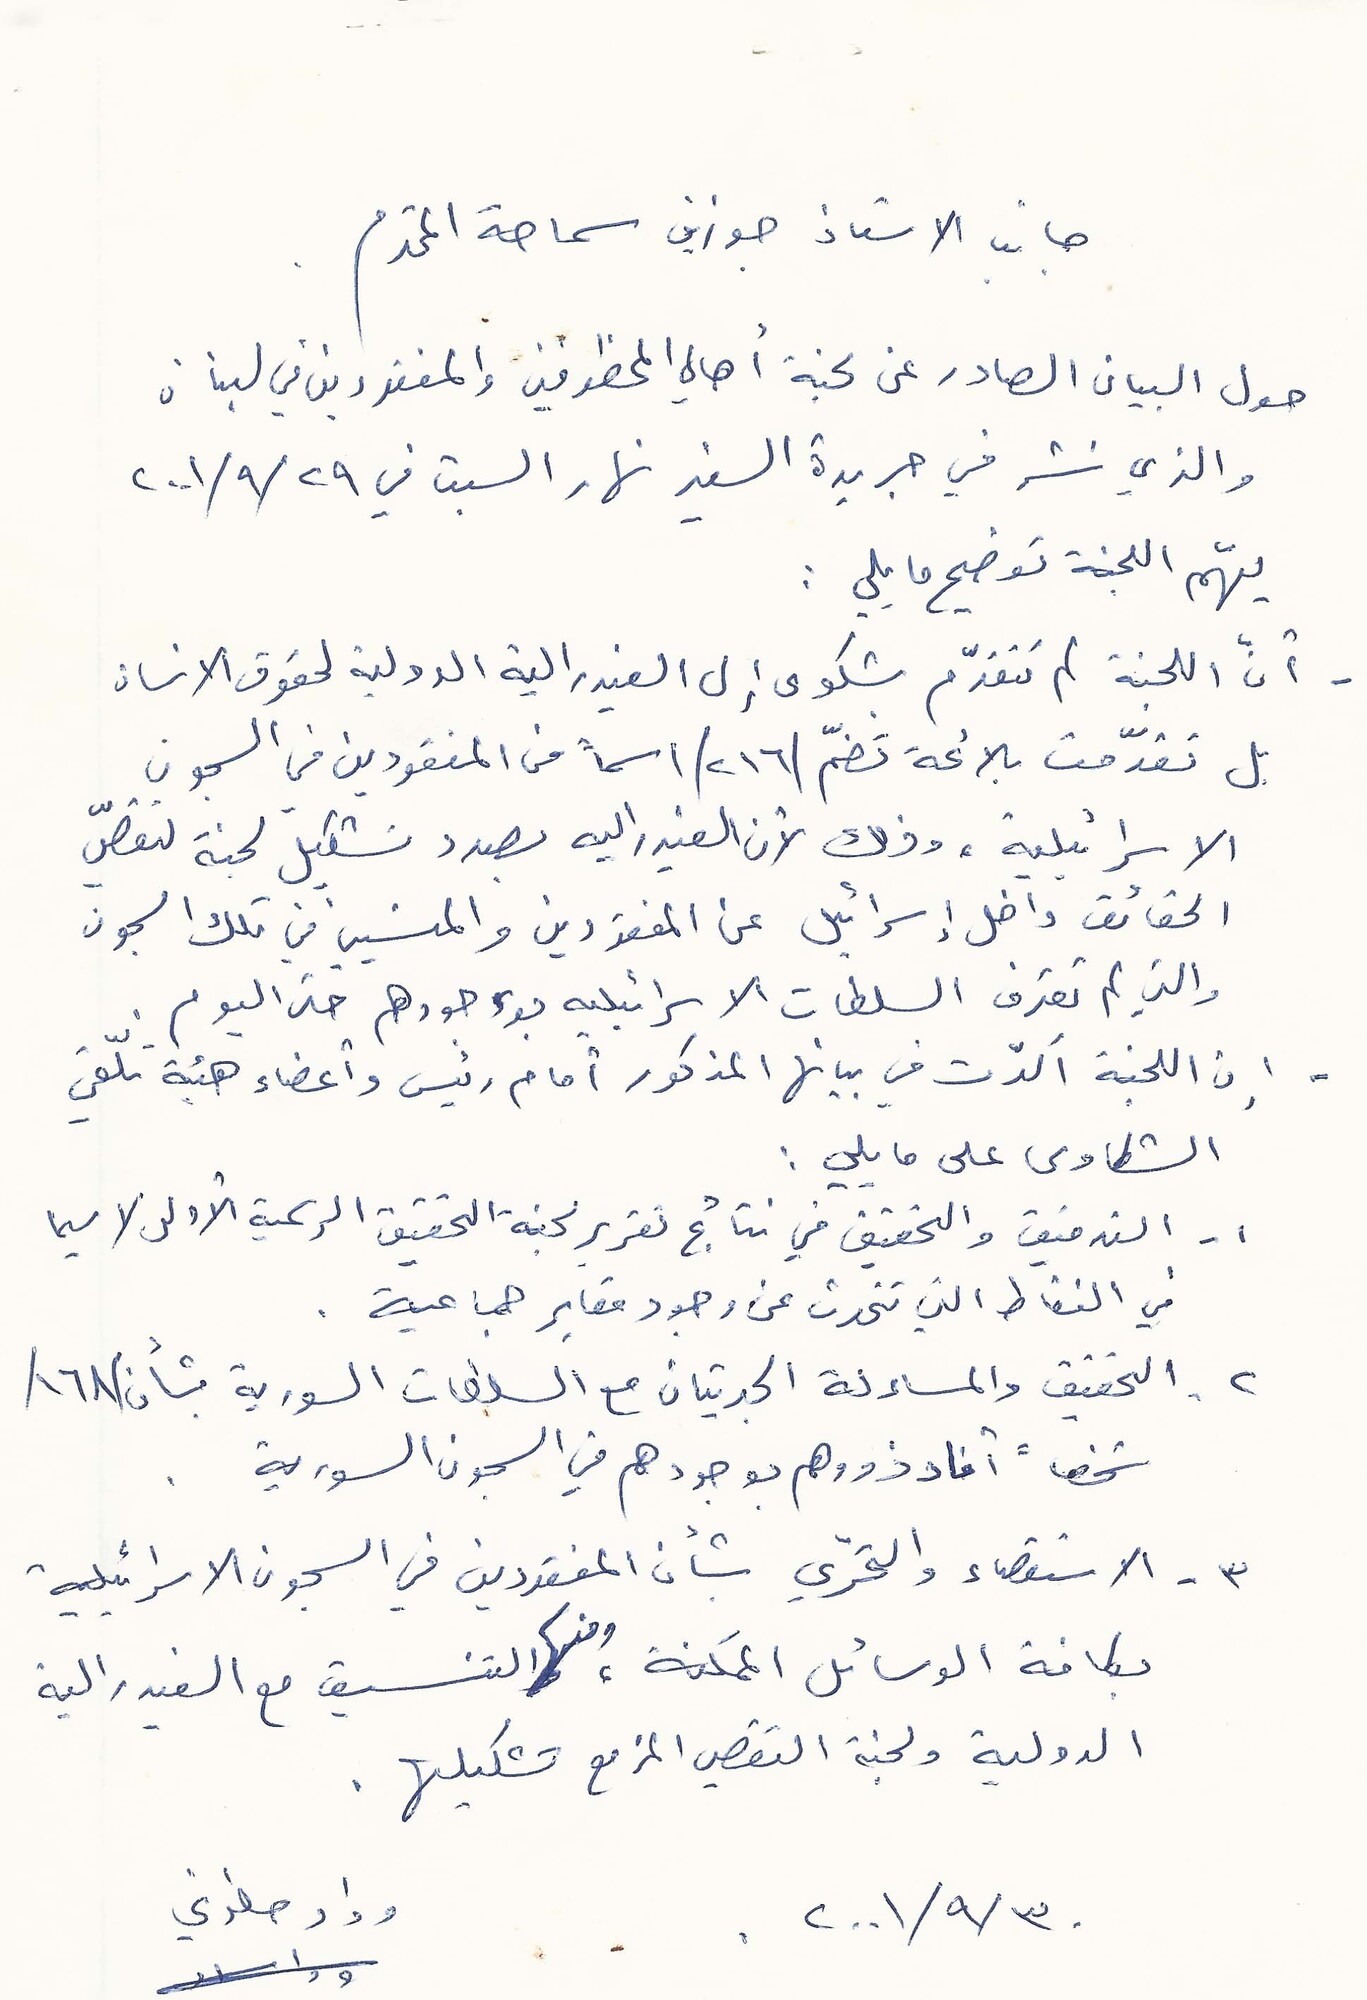 جانب الاستاذ جوزيف سماحة المحترم .
حول البيان الصادر عن لجنة أهالي المخطوفين والمفقودين في لبنان
والذي نشر في جريدة السفير نهار السبت في ٢٩/٩/٢٠٠١
يهّم اللجنة توضيح ما يلي :
- أنّ اللجنة لم تتقدّم بشكوى إلى الفيدرالية الدولية لحقوق الانسان
بل تقدّمت بلائحة تضمّ /٢١٦/ اسماً من المفقودين في السجون
الاسرائيلية ، وذلك لأن الفيدراليه بصدد تشكيل لجنة لتقصّي
الحقائق داخل إسرائيل عن المفقودين والمنسيين في تلك السجون
والتي لم تعترف السلطات الاسرائيليه بوجودهم حتى اليوم .
- إن اللجنة أكدّت في بيانها المذكور أمام رئيس وأعضاء هيئة تلّقي
الشكاوى على ما يلي :
١- التدقيق والتحقيق في نتائج تقرير لجنة التحقيق الرسمية الأولى لا سيما
في النقاط التي تتحدث عن وجود مقابر جماعية .
٢- التحقيق والمساءلة الجديتان مع السلطات السورية بشأن /١٦٨/
شخصاً أفاد ذووهم بوجودهم في السجون السورية .
٣- الاستقصاء والتحرّي بشأن المفقودين في السجون الاسرائيلية
بكافة الوسائل الممكنة ، ومنها التنسيق مع الفيدرالية
الدولية ولجنة التقصي المزمع تشكيلها .
٣٠/٩/٢٠٠١ .
وداد حلواني
وداد